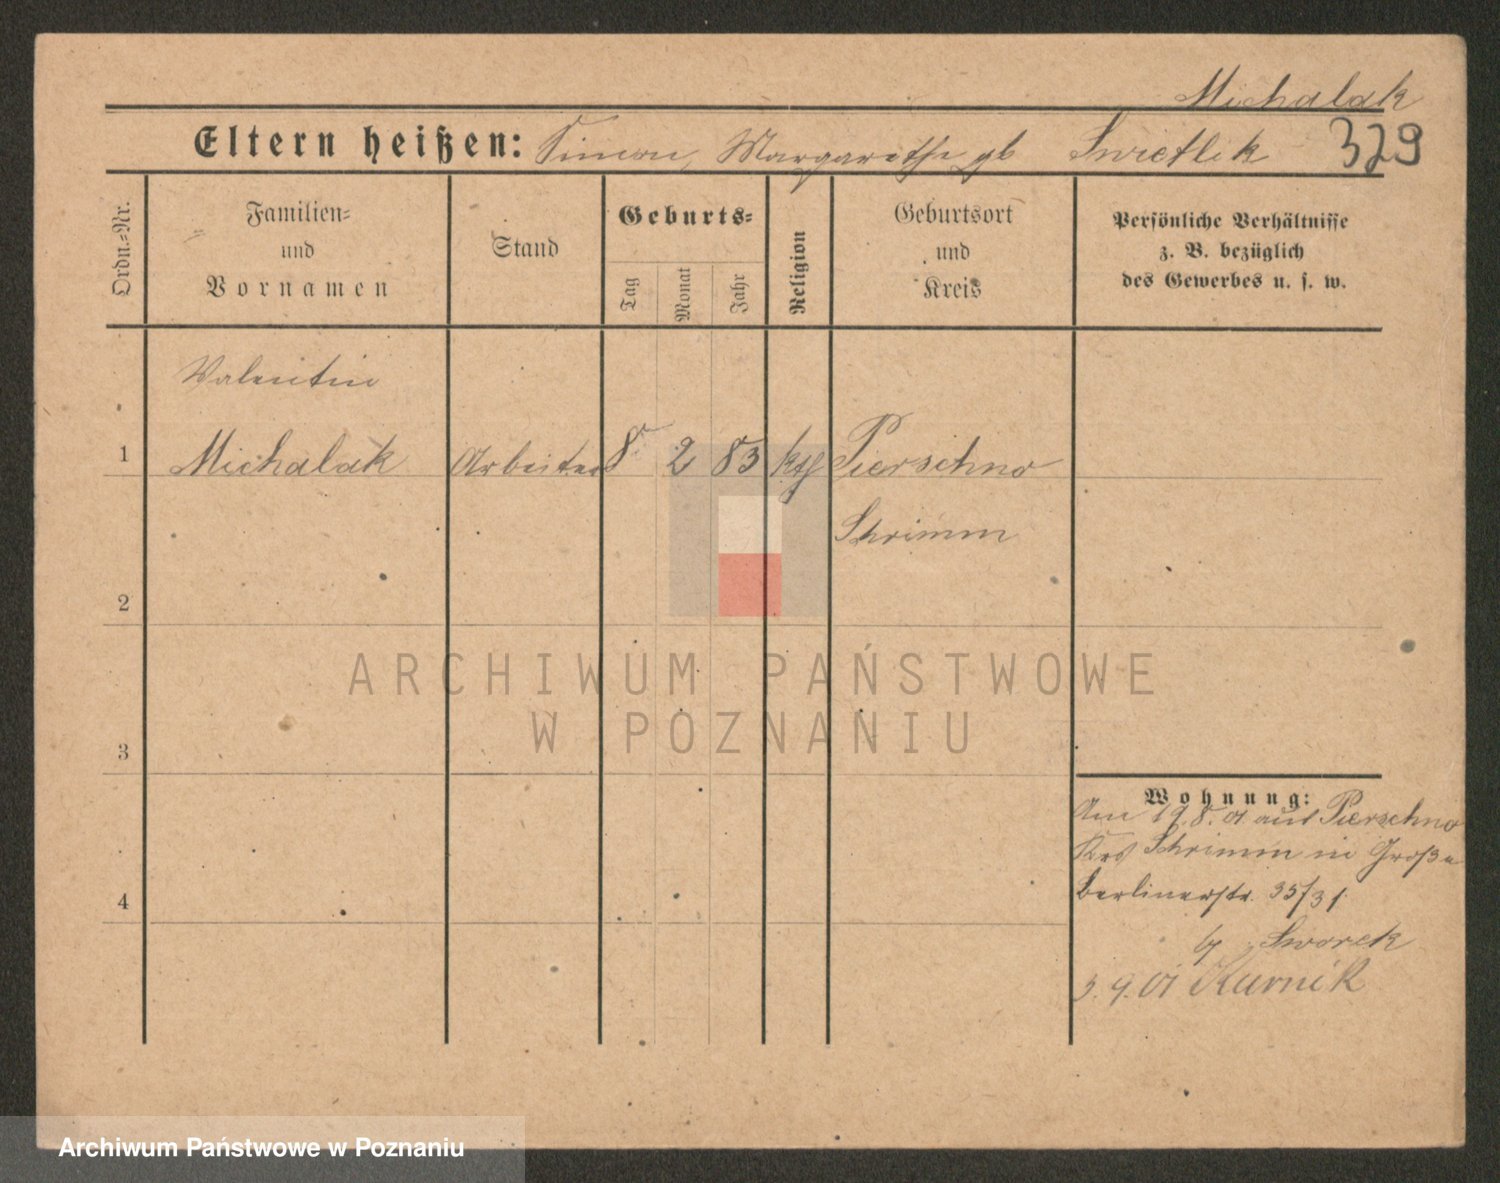 Michalak
Eltern heißen: Simon, Margarethe gb Swietlik 329
Ordn.=Nr.
Familien=
und
Vornamen
Stand
Geburts=
Tag
Monat
Jahr
Religion
Geburtsort
und
Kreis
Persönliche Verhältnisse
z. B. bezüglich
des Gewerbes u. s. w.
Valentin
1 Michalak Arbeiter 8 2 83 kth Pierschno
Schrimm
2
ARCHIWUM PAŃSTWOWE
W POZNANIU
3
Wohnung:
Am 19.8.01 aus Pierschno
Krs Schrimm in Große
Berlinerstr. 35/31
4
by Sworek
3.9.01 Kurnik
Archiwum Państwowe w Poznaniu